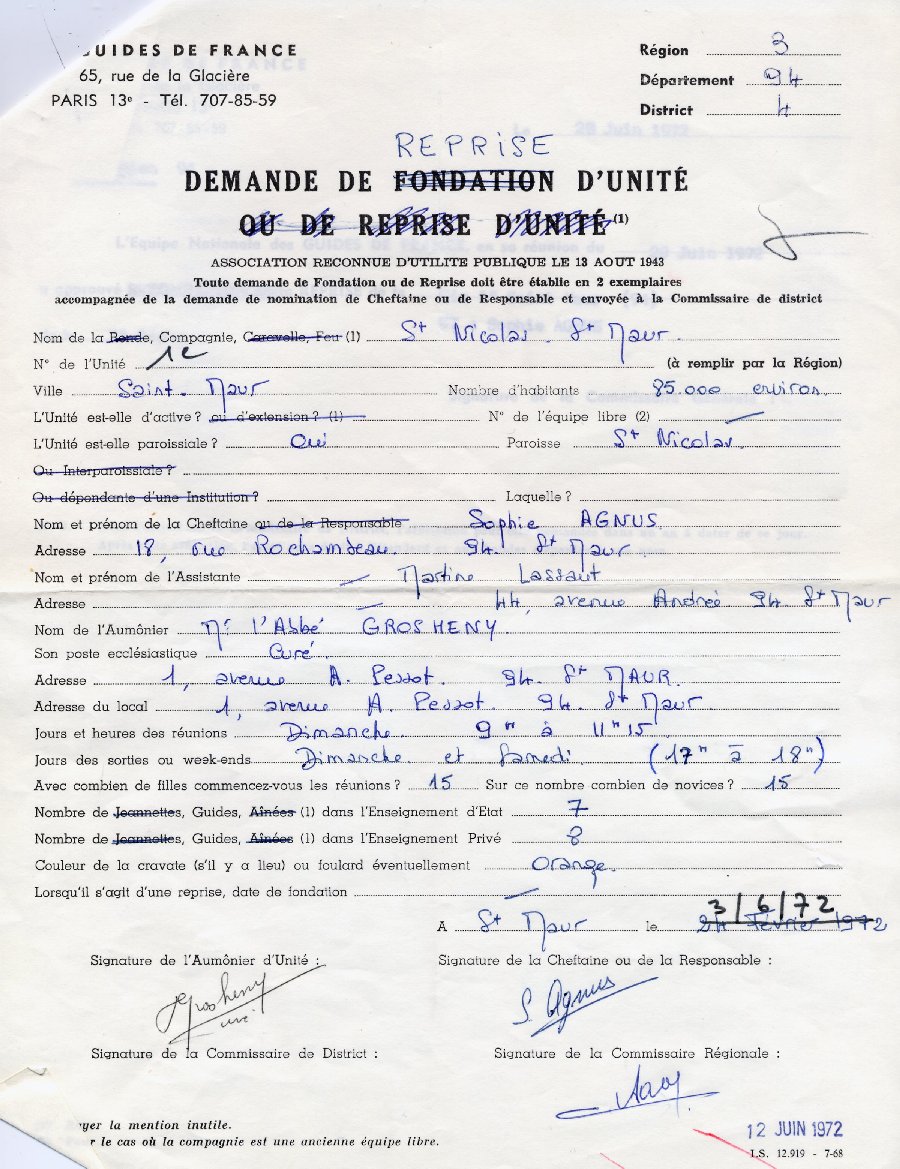 GUIDES DE FRANCE
65, rue de la Glacière
PARIS 13e - Tél. 707-85-59
Région 3
Département 94
District 4
REPRISE
DEMANDE DE FONDATION D'UNITÉ
OU DE REPRISE D'UNITÉ (1)
ASSOCIATION RECONNUE D'UTILITE PUBLIQUE LE 13 AOUT 1943
Toute demande de Fondation ou de Reprise doit être établie en 2 exemplaires
accompagnée de la demande de nomination de Cheftaine ou de Responsable et envoyée à la Commissaire de district
Nom de la Ronde, Compagnie, Caravelle, Feu (1) St Nicolas. St Maur.
N° de l'Unité 1e (à remplir par la Région)
Ville Saint. Maur Nombre d'habitants 85.000 environ.
L'Unité est-elle d'active ? ou d'extension ? (1) N° de l'équipe libre (2)
L'Unité est-elle paroissiale ? Oui Paroisse St Nicolas.
Ou Interparoissiale ?
Ou dépendante d'une Institution ? Laquelle ?
Nom et prénom de la Cheftaine ou de la Responsable Sophie AGNUS.
Adresse 18, rue Rochambeau. 94. St Maur
Nom et prénom de l'Assistante Martine Lassaut
Adresse 44, avenue Andreé 94 St Maur
Nom de l'Aumônier Mr l'Abbé GROSHENY.
Son poste ecclésiastique Curé.
Adresse 1, avenue A. Pessot. 94. St MAUR.
Adresse du local 1, avenue A. Pessot. 94. St Maur.
Jours et heures des réunions Dimanche. 9H à 11H15.
Jours des sorties ou week-ends Dimanche et Samedi (17H à 18H)
Avec combien de filles commencez-vous les réunions ? 15 Sur ce nombre combien de novices ? 15
Nombre de Jeannettes, Guides, Aînées (1) dans l'Enseignement d'Etat 7
Nombre de Jeannettes, Guides, Aînées (1) dans l'Enseignement Privé 8
Couleur de la cravate (s'il y a lieu) ou foulard éventuellement Orange.
Lorsqu'il s'agit d'une reprise, date de fondation
3/6/72
A St Maur le 24 Février 1972
Signature de l'Aumônier d'Unité :
Signature de la Cheftaine ou de la Responsable :
Grosheny
curé.
S. Agnus
Signature de la Commissaire de District :
Signature de la Commissaire Régionale :
yer la mention inutile.
r le cas où la compagnie est une ancienne équipe libre.
12 JUIN 1972
I.S. 12.919 - 7-68